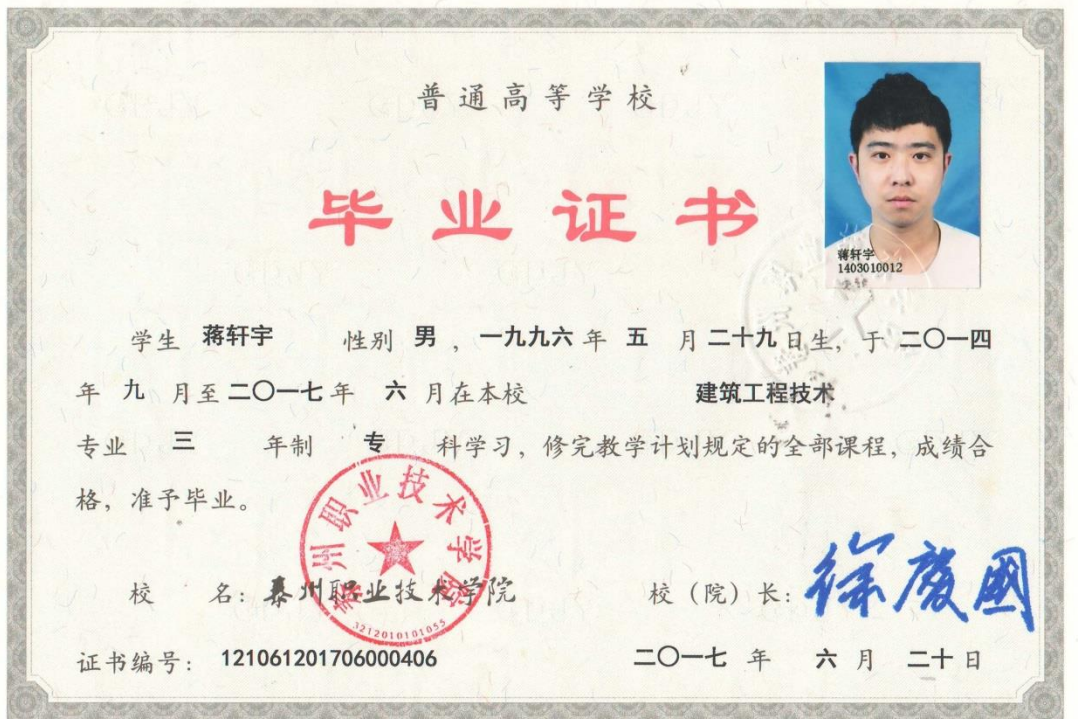 普通高等学校
毕业证书
蒋轩宇
1403010012
学生 蒋轩宇 性别 男 ，一九九六 年 五 月 二十九 日生，于 二〇一四
年 九 月至 二〇一七 年 六 月在本校 建筑工程技术
专业 三 年制 专 科学习，修完教学计划规定的全部课程，成绩合
格，准予毕业。
泰州职业技术学院
3212010101055
校 名：泰州职业技术学院 校（院）长：徐庆国
证书编号： 121061201706000406 二〇一七 年 六 月 二十 日